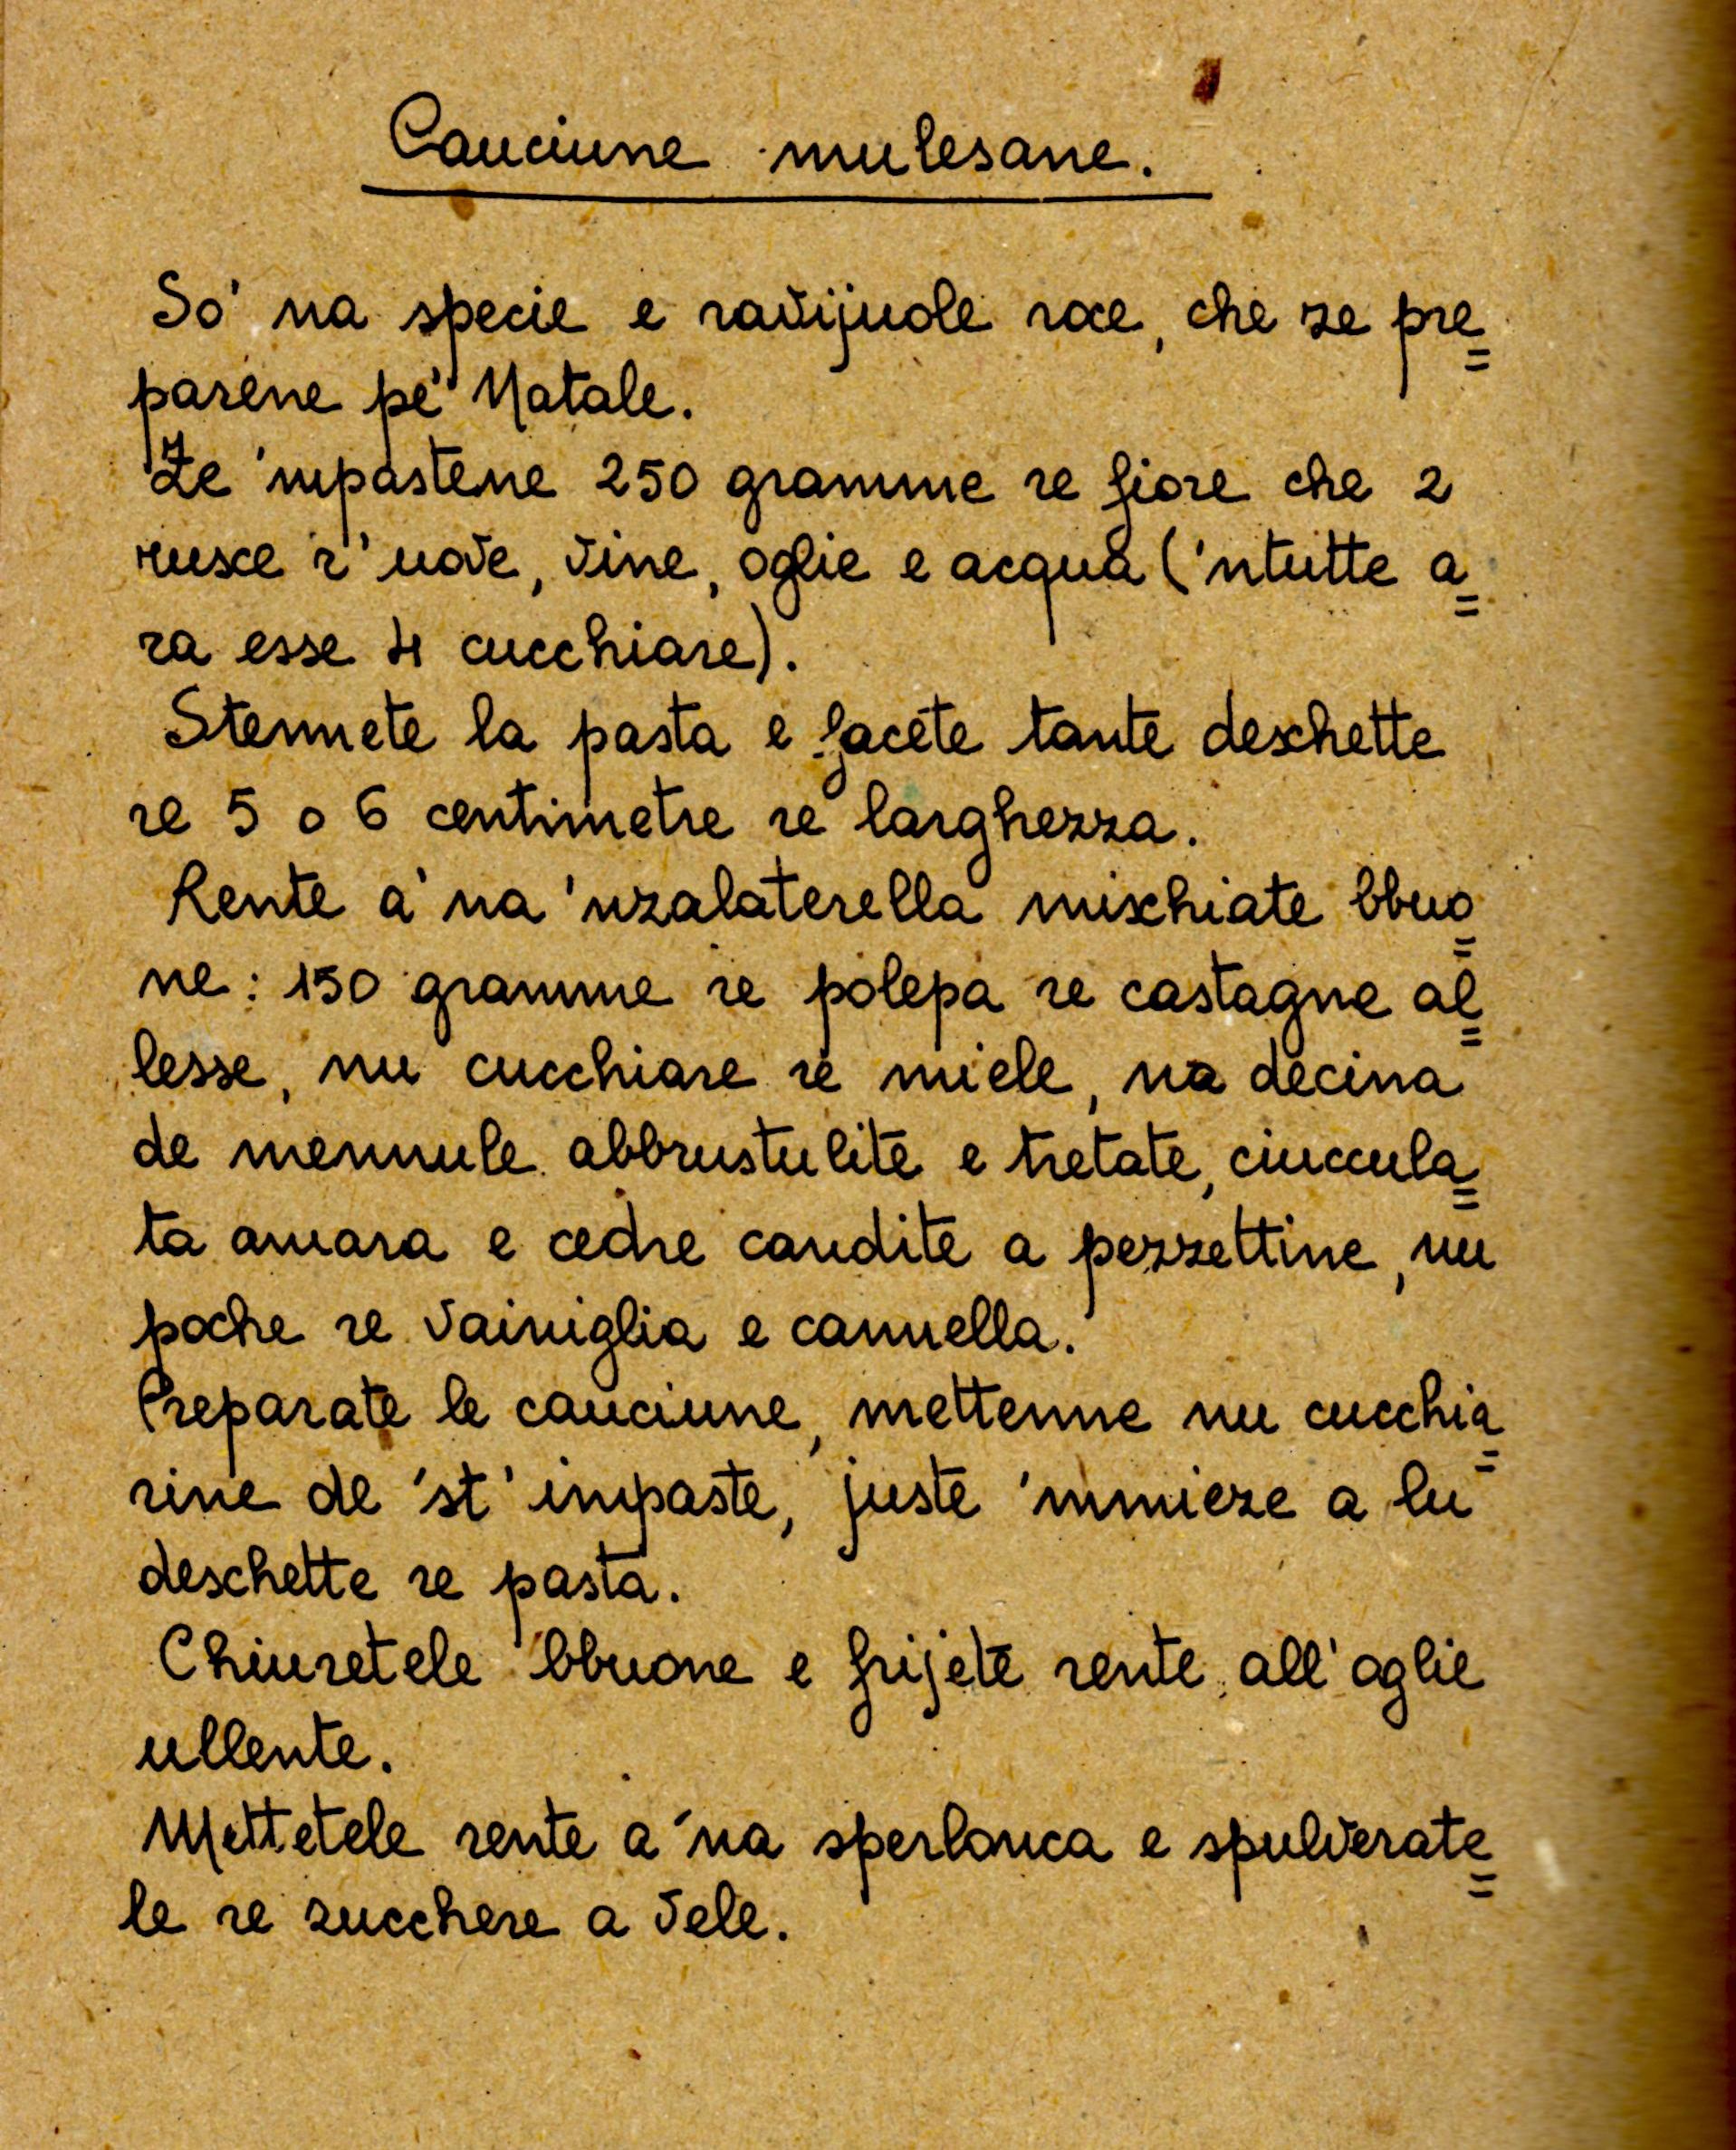 Cauciune mulesane.
So' na specie e ravijuole roce, che ze pre=
parene pe' Natale.
Ze 'mpastene 250 gramme re fiore che 2
rusce r' uove, vine, oglie e acqua ('ntutte a=
ra esse 4 cucchiare).
Stennete la pasta e facete tante deschette
re 5 o 6 centimetre re larghezza.
Rente a' na 'nzalaterella mischiate bbuo=
ne: 150 gramme re polepa re castagne al=
lesse, nu cucchiare re miele, na decina
de mennule abbrustulite e tretate, ciuccula=
ta amara e cedre candite a pezzettine, nu
poche re vainiglia e cannella.
Preparate le cauciune, mettenne nu cucchia=
rine de 'st' impaste, juste 'mmieze a lu
deschette re pasta.
Chiuretele bbuone e frijete rente all'oglie
ullente.
Mettetele rente a 'na sperlonca e spulverate=
le re zucchere a vele.